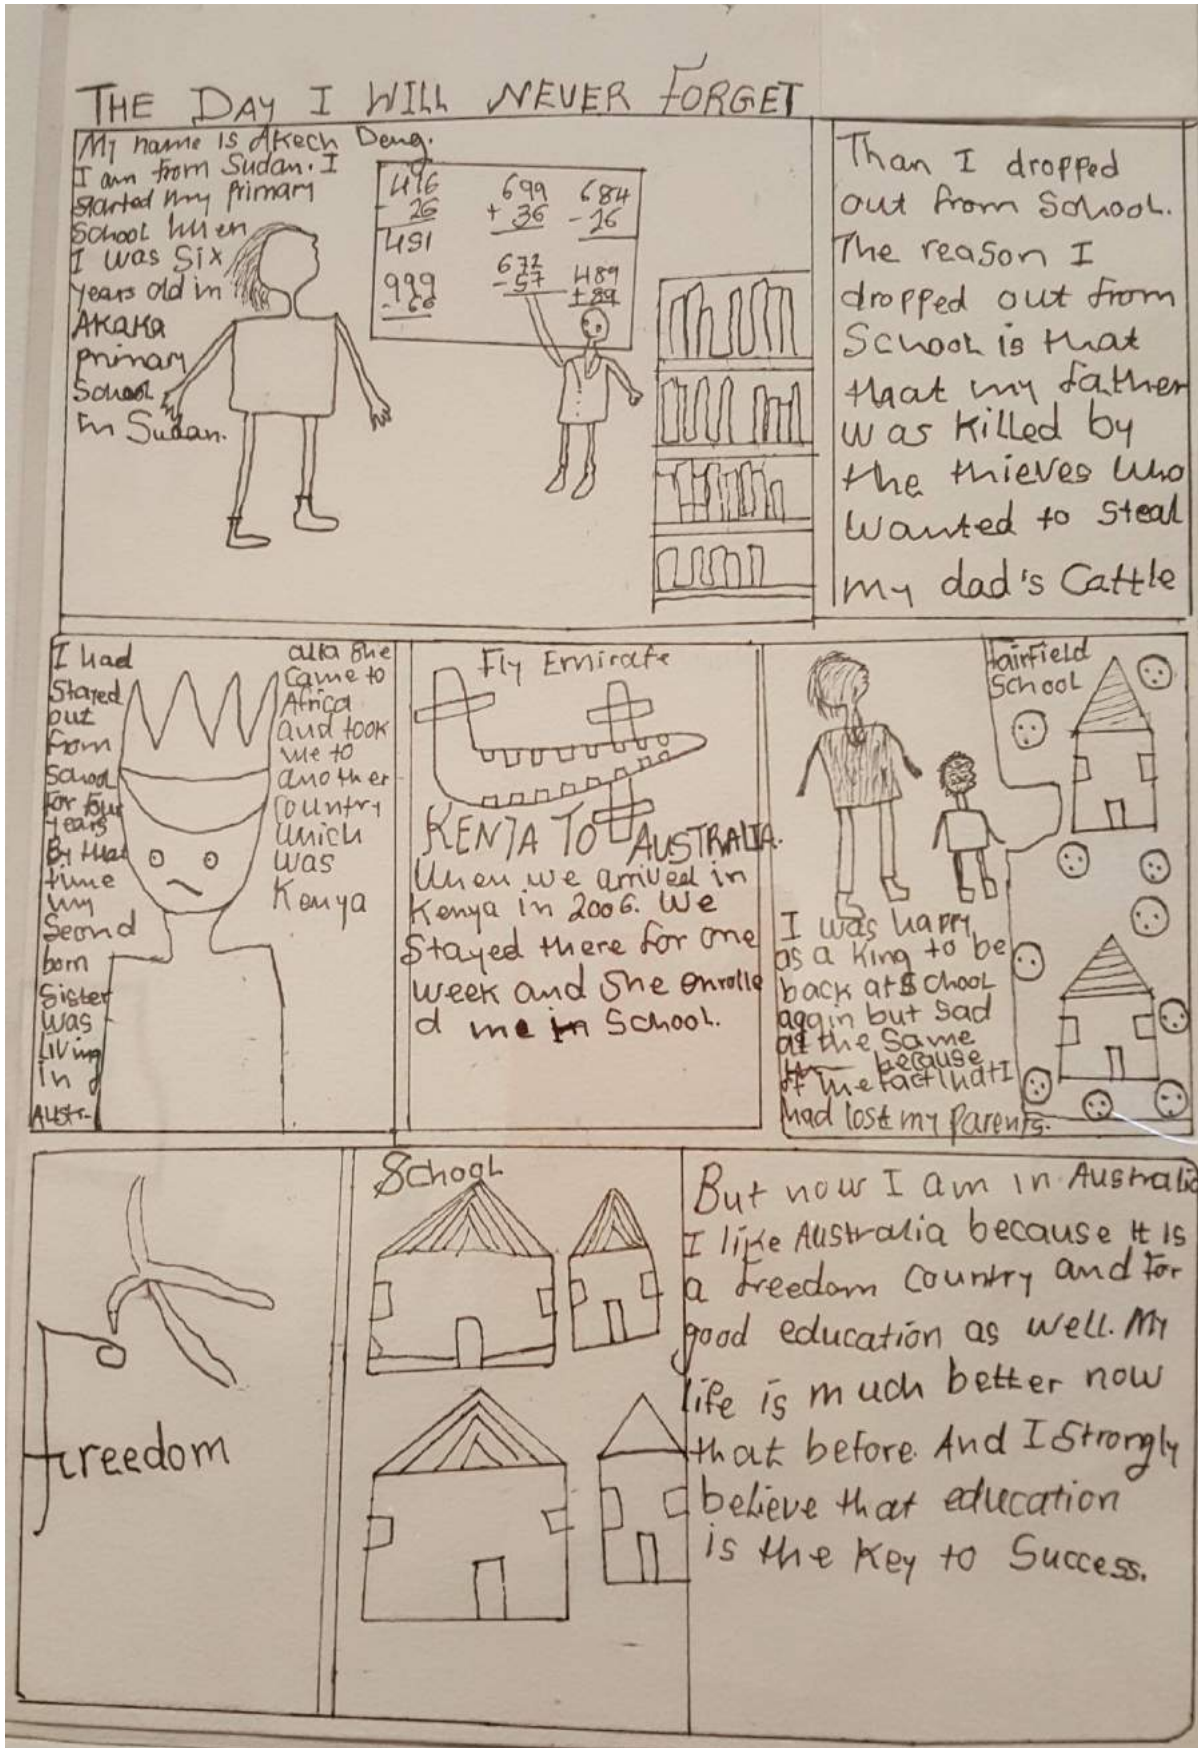 THE DAY I WILL NEVER FORGET
My name is Akech Deng.
I am from Sudan. I
started my primary
School when
I was six
years old in
AKAKA
primary
School
In Sudan.
496 699 684
- 26 + 36 - 26
491
999 672 489
- 57 + 89
Than I dropped
out from School.
The reason I
dropped out from
School is that
that my father
was killed by
the thieves who
wanted to steal
my dad's Cattle
I had
Stayed
out
from
School
for four
years
By that
time
my
Seond
born
Sister
was
Living
in
Austr-
alia She
Came to
Africa
and took
me to
another
Country
which
was
Kenya
Fly Emirate
KENJA TO AUSTRALIA.
When we arrived in
Kenya in 2006. We
Stayed there for one
week and She enrolle
d me in School.
Fairfield
School
I was happy
as a King to be
back at School
again but sad
at the Same
because
of the fact that I
had lost my parents.
freedom
School
But now I am in Australia
I like Australia because it is
a freedom Country and for
good education as well. My
life is much better now
that before. And I Strongly
believe that education
is the Key to Success.